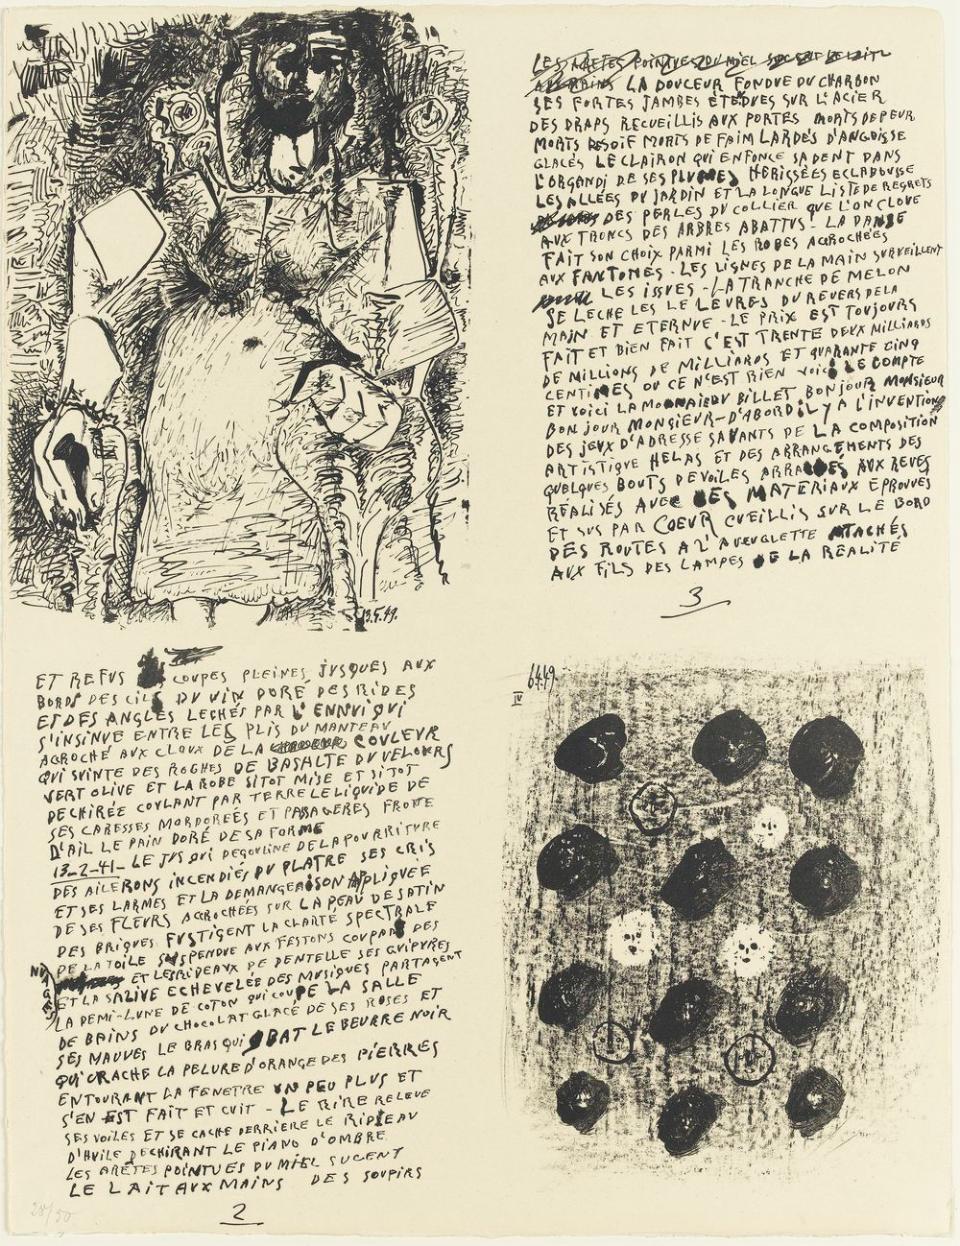 LES ARÊTES POINTUES DU MIEL SUCENT LE LAIT
AUX MAINS LA DOUCEUR FONDUE DU CHARBON
SES FORTES JAMBES ETENDUES SUR L'ACIER
DES DRAPS RECUEILLIS AUX PORTES MORTS DE PEUR
MORTS DE SOIF MORTS DE FAIM LARDÉS D'ANGOISSE
GLACÉS LE CLAIRON QUI ENFONCE SA DENT DANS
L'ORGANDI DE SES PLUMES HERISSÉES ECLABOUSSE
LES ALLÉES DU JARDIN ET LA LONGUE LISTE DE REGRETS
DES PERLES DU COLLIER QUE L'ON CLOUE
AUX TRONCS DES ARBRES ABATTUS - LA DANSE
FAIT SON CHOIX PARMI LES ROBES ACROCHÉES
AUX FANTOMES - LES LIGNES DE LA MAIN SURVEILLENT
LES ISSUES - LA TRANCHE DE MELON
SE LECHE LES LEVRES DU REVERS DE LA
MAIN ET ETERNUE - LE PRIX EST TOUJOURS
FAIT ET BIEN FAIT C'EST TRENTE DEUX MILLIARDS
DE MILLIONS DE MILLIARDS ET QUARANTE CINQ
CENTIMES OU CE N'EST RIEN VOICI LE COMPTE
ET VOICI LA MONNAIE DU BILLET BONJOUR MONSIEUR
BONJOUR MONSIEUR - D'ABORD IL Y A L'INVENTION
DES JEUX D'ADRESSE SAVANTS DE LA COMPOSITION
ARTISTIQUE HELAS ET DES ARRANGEMENTS DES
QUELQUES BOUTS DE VOILES AUX REVES
RÉALISÉS AVEC DES MATERIAUX EPROUVES
ET SUS PAR COEUR CUEILLIS SUR LE BORD
DES ROUTES A L'AVEUGLETTE ATACHÉS
AUX FILS DES LAMPES DE LA RÉALITÉ
3
13.5.49.
ET REFUS COUPES PLEINES JUSQUES AUX
BORDS DES CILS DU VIN DORE DES RIDES
ET DES ANGLES LECHÉS PAR L'ENNUI QUI
S'INSINUE ENTRE LES PLIS DU MANTEAU
ACROCHÉ AUX CLOUX DE LA COULEUR
QUI SUINTE DES ROCHES DE BASALTE DU VELOURS
VERT OLIVE ET LA ROBE SITOT MISE ET SITOT
DECHIRÉE COULANT PAR TERRE LE LIQUIDE DE
SES CARESSES MORDORÉES ET PASSAGERES FROTTE
D'AIL LE PAIN DORÉ DE SA FORME
13-2-41- LE JUS QUI DEGOULINE DE LA POURRITURE
DES AILERONS INCENDIÉS DU PLATRE SES CRIS
ET SES LARMES ET LA DEMANGEAISON APPLIQUÉE
DE SES FLEURS ACROCHÉES SUR LA PEAU DE SATIN
DES BRIQUES FUSTIGENT LA CLARTÉ SPECTRALE
DE LA TOILE SUSPENDUE AUX FESTONS COUPANT DES
NUAGES ET LES RIDEAUX DE DENTELLE SES GUIPURES
ET LA SALIVE ECHEVELÉE DES MUSIQUES PARTAGENT
LA DEMI-LUNE DE COTON QUI COUPE LA SALLE
DE BAINS DU CHOCOLAT GLACÉ DE SES ROSES ET
SES MAUVES LE BRAS QUI BAT LE BEURRE NOIR
QUI CRACHE LA PELURE D'ORANGE DES PIERRES
ENTOURANT LA FENETRE UN PEU PLUS ET
S'EN EST FAIT ET CUIT - LE RIRE RELEVE
SES VOILES ET SE CACHE DERRIERE LE RIDEAU
D'HUILE DECHIRANT LE PIANO D'OMBRE
LES ARÊTES POINTUES DU MIEL SUCENT
LE LAIT AUX MAINS DES SOUPIRS
2
28/50
6.4.49
IV